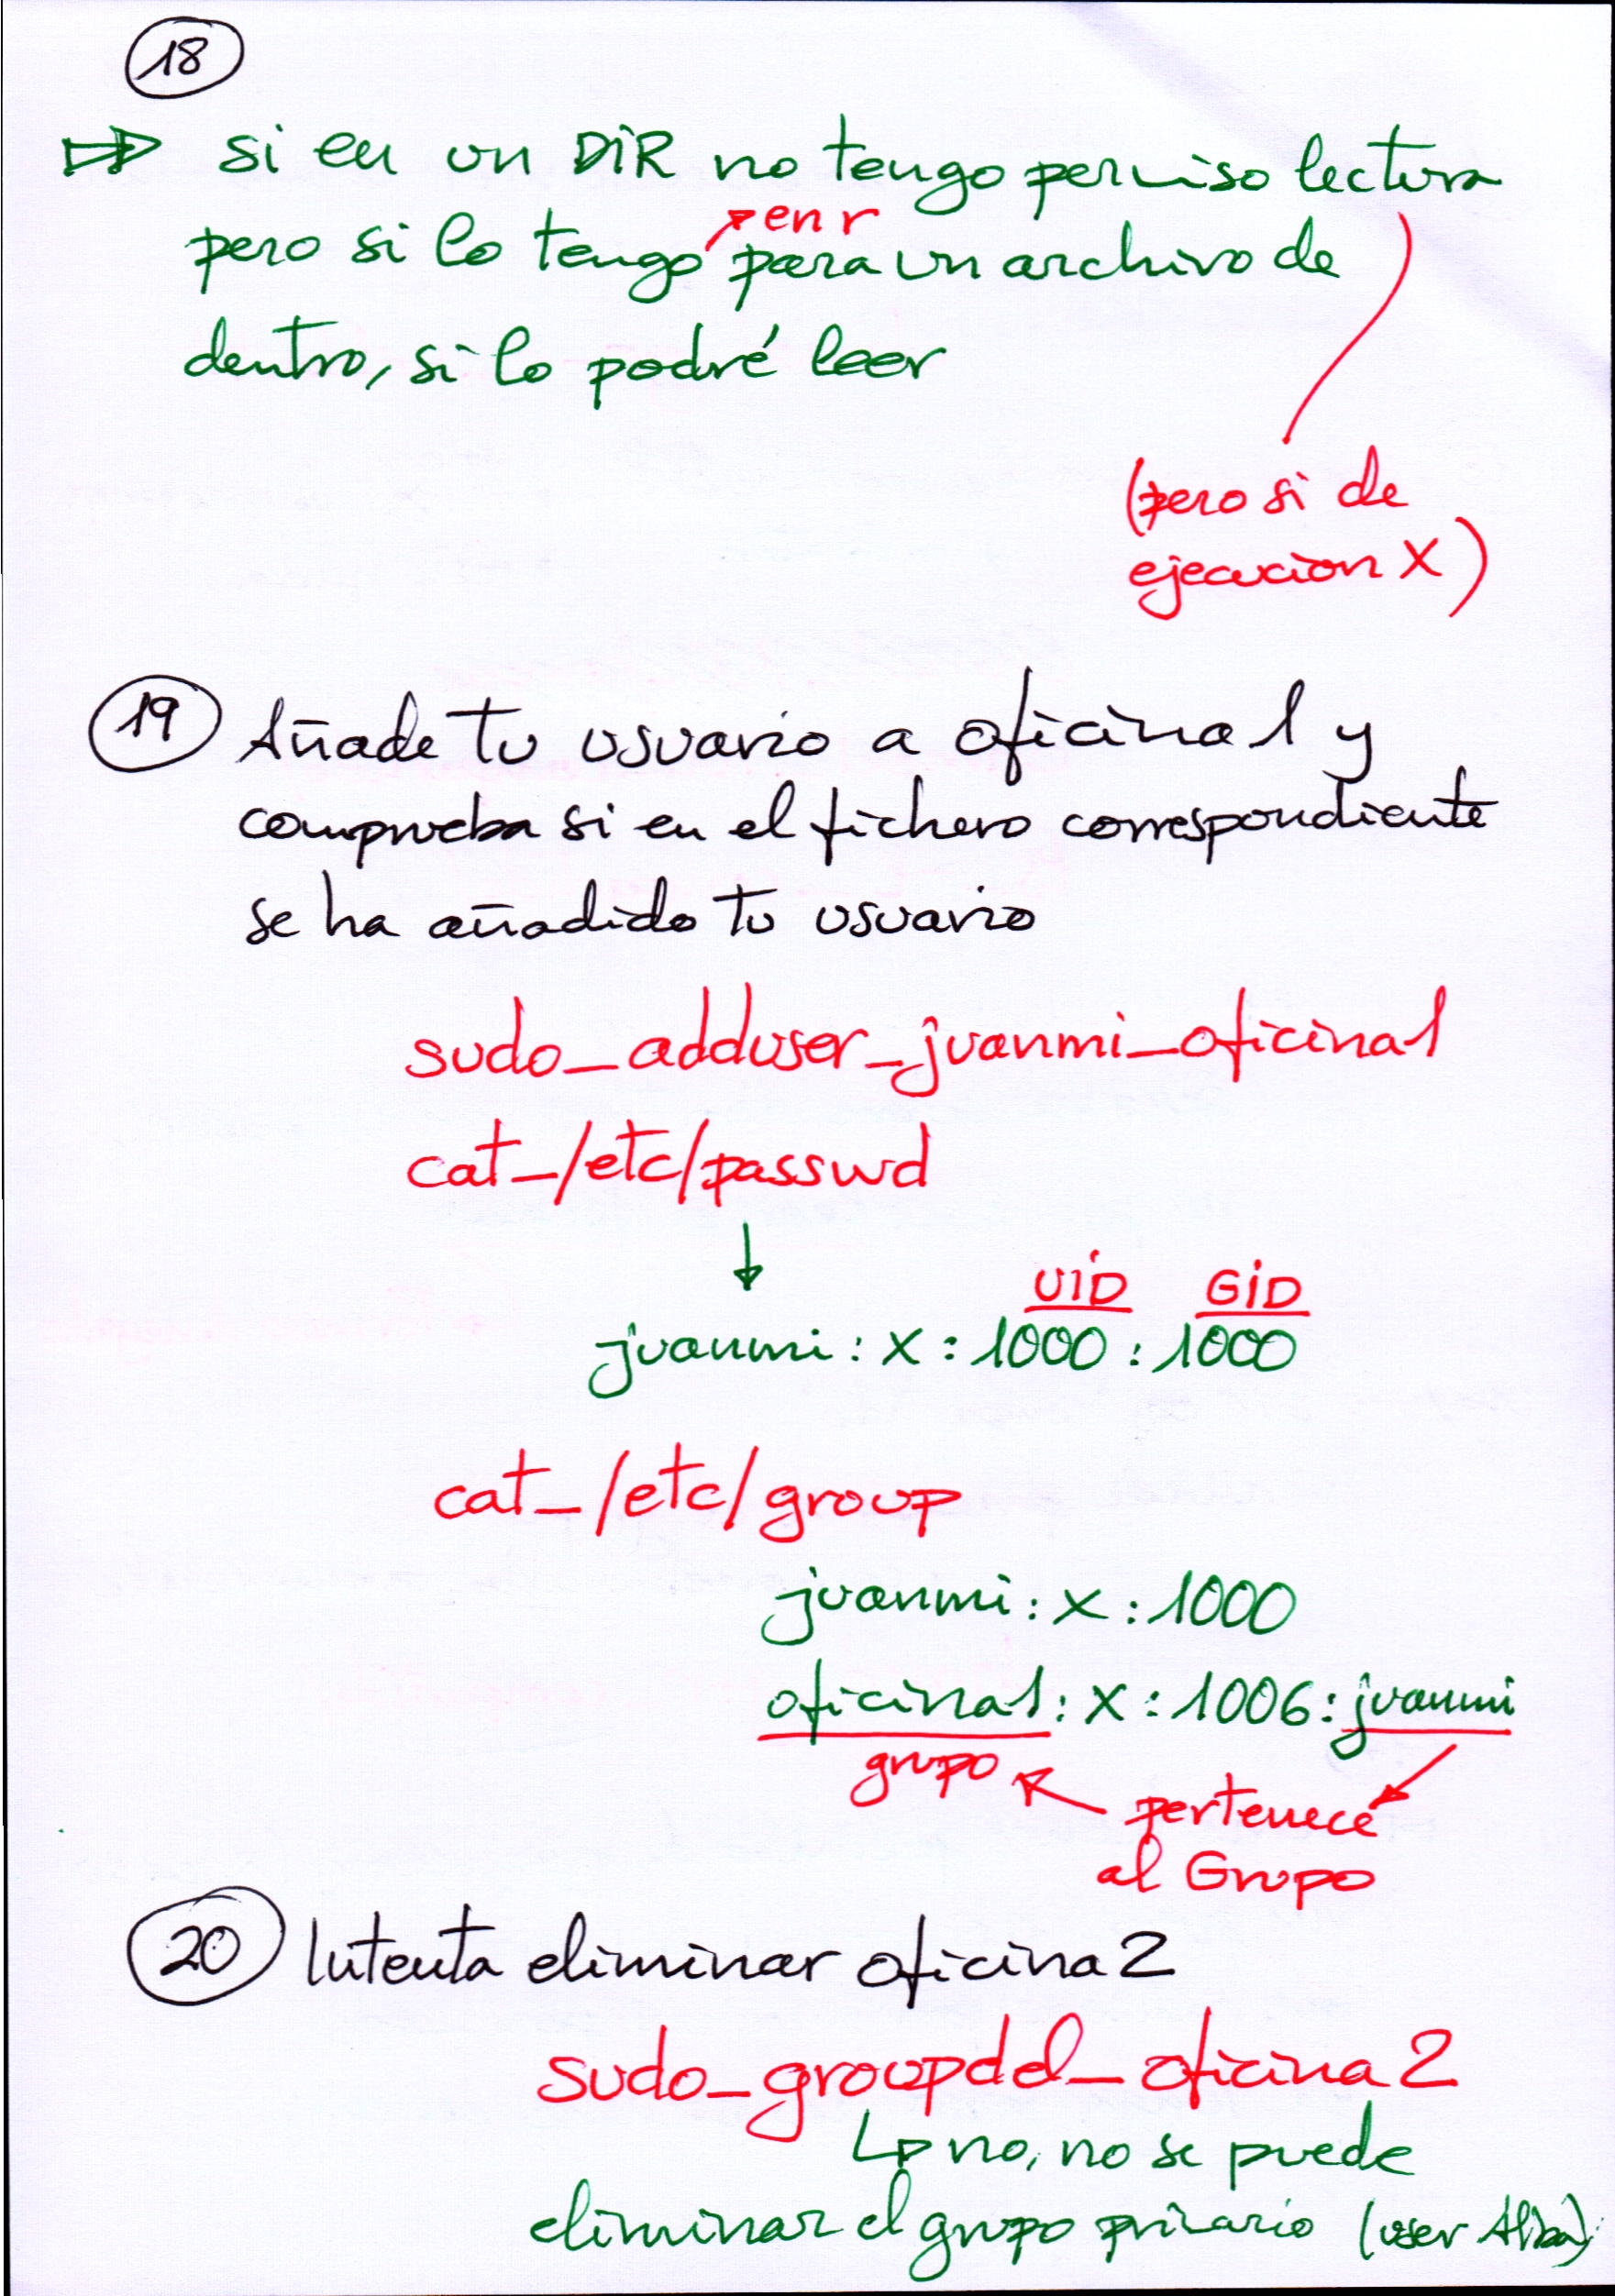 18
si en un DIR no tengo permiso lectura
en r
pero si lo tengo para un archivo de
dentro, si lo podré leer
(pero si de
ejecucion X)
19 Añade tu usuario a oficina1 y
comprueba si en el fichero correspondiente
se ha añadido tu usuario
sudo_adduser_juanmi_oficina1
cat_/etc/passwd
UID GID
juanmi : X : 1000 : 1000
cat_/etc/group
juanmi : X : 1000
oficina1 : X : 1006 : juanmi
grupo
pertenece
al Grupo
20 Intenta eliminar oficina2
sudo_groupdel_oficina2
no, no se puede
eliminar el grupo primario (user Alba)